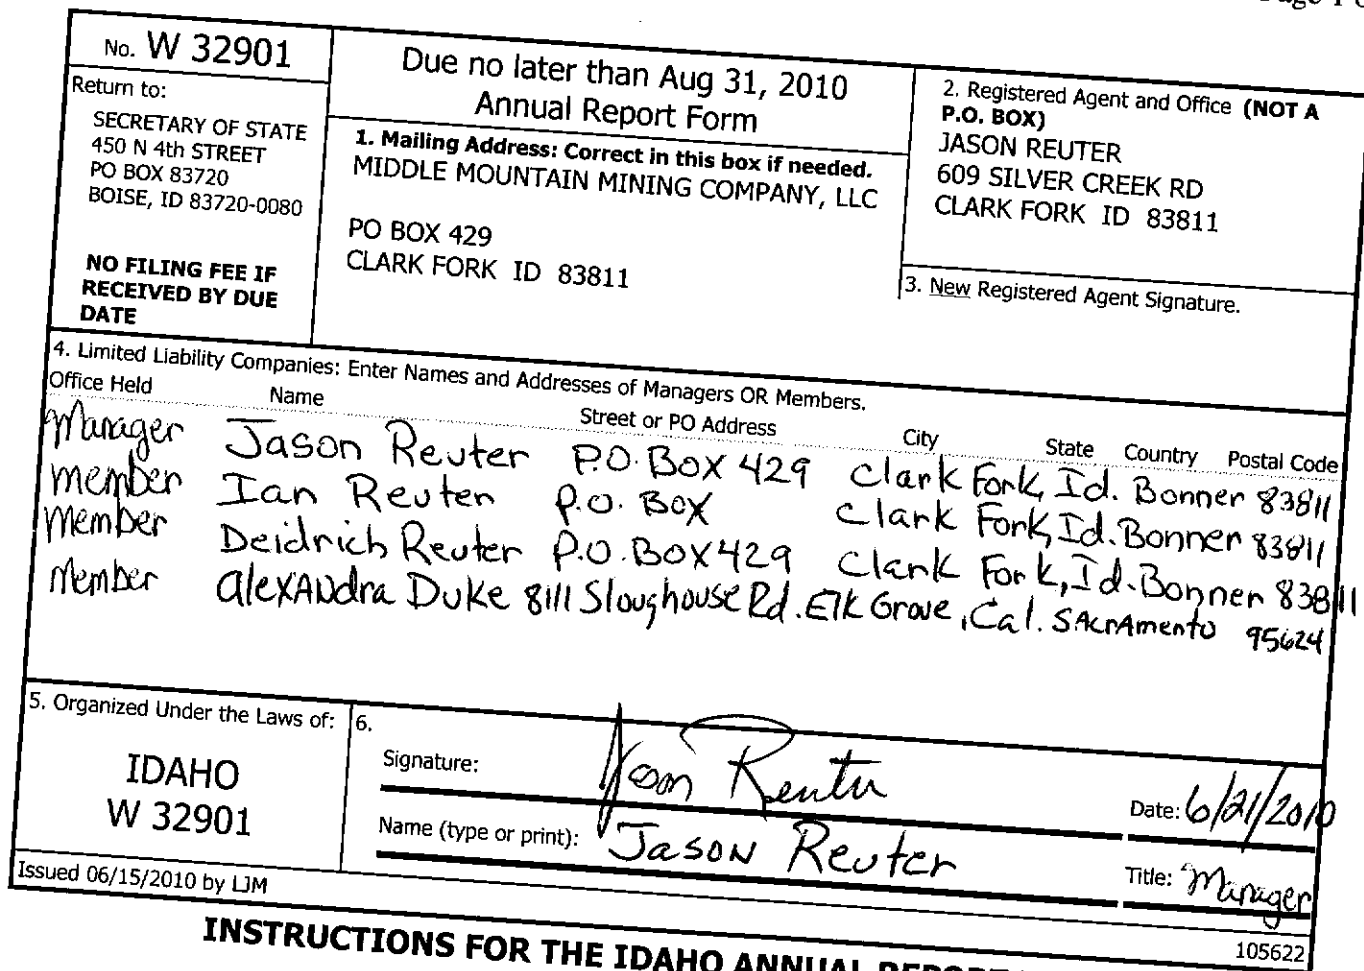 Page 1 o
No. W 32901
Return to:
SECRETARY OF STATE
450 N 4th STREET
PO BOX 83720
BOISE, ID 83720-0080
NO FILING FEE IF
RECEIVED BY DUE
DATE
Due no later than Aug 31, 2010
Annual Report Form
1. Mailing Address: Correct in this box if needed.
MIDDLE MOUNTAIN MINING COMPANY, LLC
PO BOX 429
CLARK FORK ID 83811
2. Registered Agent and Office (NOT A
P.O. BOX)
JASON REUTER
609 SILVER CREEK RD
CLARK FORK ID 83811
3. New Registered Agent Signature.
4. Limited Liability Companies: Enter Names and Addresses of Managers OR Members.
Office Held Name Street or PO Address City State Country Postal Code
Manager Jason Reuter P.O. Box 429 Clark Fork, Id. Bonner 83811
Member Ian Reuter P.O. Box Clark Fork, Id. Bonner 83811
Member Deidrich Reuter P.O. Box 429 Clark Fork, Id. Bonner 83811
Member AlexANdra Duke 8111 Sloughouse Rd. Elk Grove, Cal. SAcrAmento 95624
5. Organized Under the Laws of:
IDAHO
W 32901
6.
Signature: Jason Reuter
Date: 6/21/2010
Name (type or print): Jason Reuter
Title: Manager
Issued 06/15/2010 by LJM
105622
INSTRUCTIONS FOR THE IDAHO ANNUAL REPORT